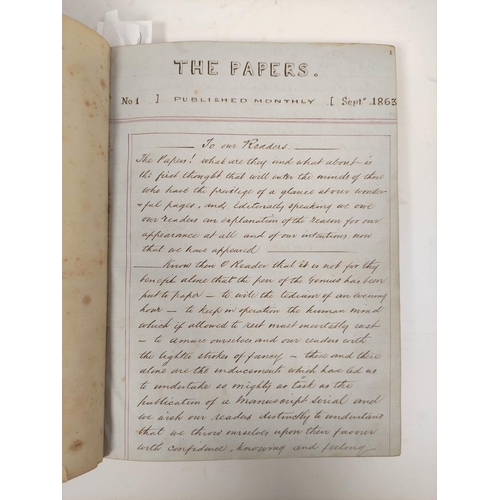 1
THE PAPERS.
No 1 ] PUBLISHED MONTHLY [ Septr. 1863
To our Readers.
The Papers! what are they and what about - is
the first thought that will enter the minds of those
who have the privilege of a glance at our wonder-
-ful pages, and, Editorially speaking we owe
our readers an explanation of the reason for our
appearance at all and of our intentions now
that we have appeared
Know then O Reader that it is not for thy
benefit alone that the pen of the Genius has been
put to paper - to wile the tedium of an evening
hour - to keep in operation the human mind
which if allowed to rest must inevitably rust
- to amuse ourselves and our readers with
the lighter strokes of fancy - these and these
alone are the inducements which have led us
to undertake so mighty as task as the
publication of a Manuscript serial and
we wish our readers distinctly to understand
that we throw ourselves upon their favour
with confidence, knowing and feeling